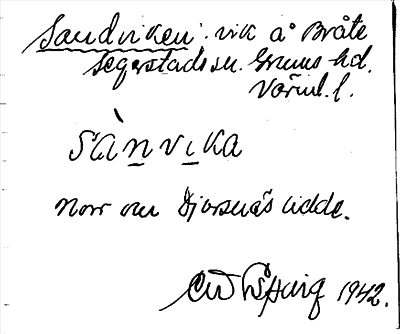 Sandviken: vik å Bråte
Segerstads sn. Grums hd.
Värml. l.
sànvika
Norr om Djursnäs udde.
1942.